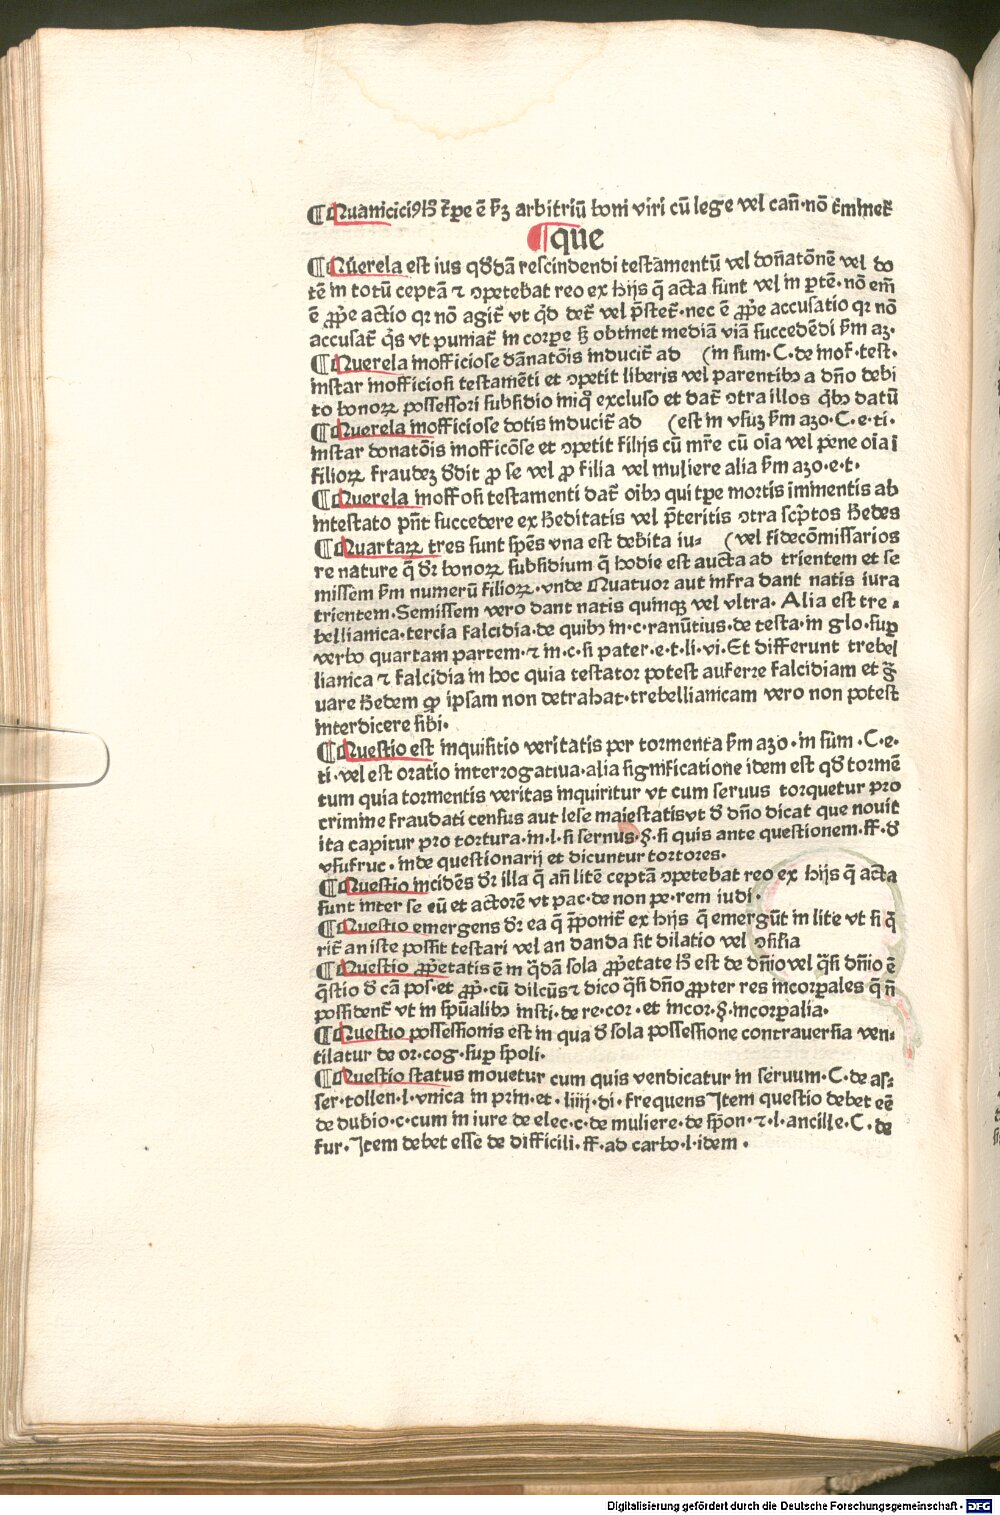 ¶Quanicici9 lꝫ t̃ꝑe ē ẜꝫ arbitriū boni viri cū lege vel cañ·nō t̃minet̃
¶que
¶Q̄uerela est ius qđdā rescindendi testamentū vel doñatōnē vel do
tē in totū ceptā ⁊ ꝯpetebat reo ex hijs q̄ acta sunt vel in ꝑtē·nō em̄
ē ꝓṗe actio qꝛ nō agit̃ vt q̇d det̃ vel p̄stet̃·nec ē ꝓṗe accusatio qꝛ nō
accusat̃ q̇s vt puniat̃ in corꝑe sꝫ obtinet mediā viā succedēdi ẜm aꝫ·
¶Querela inofficiose dānatōis inducit̃ ad (in sum·C·de inof·test·
instar inofficiosi testamēti et ꝯpetit liberis vel parentibꝫ a dño debi
to bonoꝝ possessori subsidio iniq̄ excluso et dat̃ ꝯtra illos q̇bꝫ datū
¶Querela inofficiose dotis inducit̃ ad (est in vsuꝫ ẜm aꝫo·C·e·ti·
instar donatōis inofficōse et ꝯpetit filijs cū mr̄e cū oīa vel pene oīa i
filioꝝ fraudeꝫ đdit ꝓ se vel ꝓ filia vel muliere alia ẜm aꝫo·e·t·
¶Querela inoff osi testamenti dat̃ oibꝫ qui tꝑe mortis iminentis ab
intestato pñt succedere ex heditatis vel p̄teritis ꝯtra scp̄tos hedes
¶Quartaꝝ tres sunt sp̄es vna est debita iu⸗ (vel fidecōmissarios
re nature q̄ dꝛ bonoꝝ subsidium q̄ hodie est aucta ad trientem et se
missem ẜm numerū filioꝝ·vnde Quatuor aut infra dant natis iura
trientem·Semissem vero dant natis quinqꝫ vel vltra· Alia est tre⸗
bellianica·tercia falcidia·de quibꝫ in·c·ranūtius·de testa·in glo·suꝑ
verbo quartam partem·⁊ in·c·si pater·e·t·li·vi·Et differunt trebel
lianica ⁊ falcidia in hoc quia testator potest auferre falcidiam et g̃
uare hedem ꝙ ipsam non detrahat·trebellianicam vero non potest
interdicere sibi·
¶Questio est inquisitio veritatis per tormenta ẜm aꝫo·in sum·C·e·
ti·vel est oratio interrogatiua·alia significatione idem est qđ tormē
tum quia tormentis veritas inquiritur vt cum seruus torquetur pro
crimine fraudati census aut lese maiestatis vt đ dño dicat que nouit
ita capitur pro tortura·in·l·si sernus·§·si quis ante questionem·ff·đ
vsufruc·inde questionarij et dicuntur tortores·
¶Questio incidēs dꝛ illa q̄ añ litē ceptā ꝯpetebat reo ex hijs q̄ acta
sunt inter se eū et actorē vt pac·de non pe·rem iudi·
¶Questio emergens dꝛ ea q̄ p̄ponit̃ ex hijs q̄ emergūt in lite vt si q̄
rit̃ an iste possit testari vel an danda sit dilatio vel ꝯsilia
¶Questio ꝓp̄etatis ē in q̄dā sola ꝓp̄etate lꝫ est de dñio vel q̄si dñio ē
q̄stio đ cā pos·et ꝓp̄·cū dilcūs ⁊ dico q̄si dñio ꝓpter res incorꝑales q̄ ñ
possident̃ vt in sp̄ualibꝫ insti·de re·cor·et incor·§·incorꝑalia·
¶Questio possessionis est in qua đ sola possessione contrauersia ven⸗
tilatur de or·cog·suꝑ spoli·
¶Questio status mouetur cum quis vendicatur in seruum·C·de as⸗
ser·tollen·l·vnica in prin·et·liiij·di·frequens Item questio debet eē
de dubio·c·cum in iure de elec·c·de muliere·de sp̄on·⁊·l·ancille·C·de
fur·Item debet esse de difficili·ff·ad carbo·l·idem·
Digitalisierung gefördert durch die Deutsche Forschungsgemeinschaft - DFG